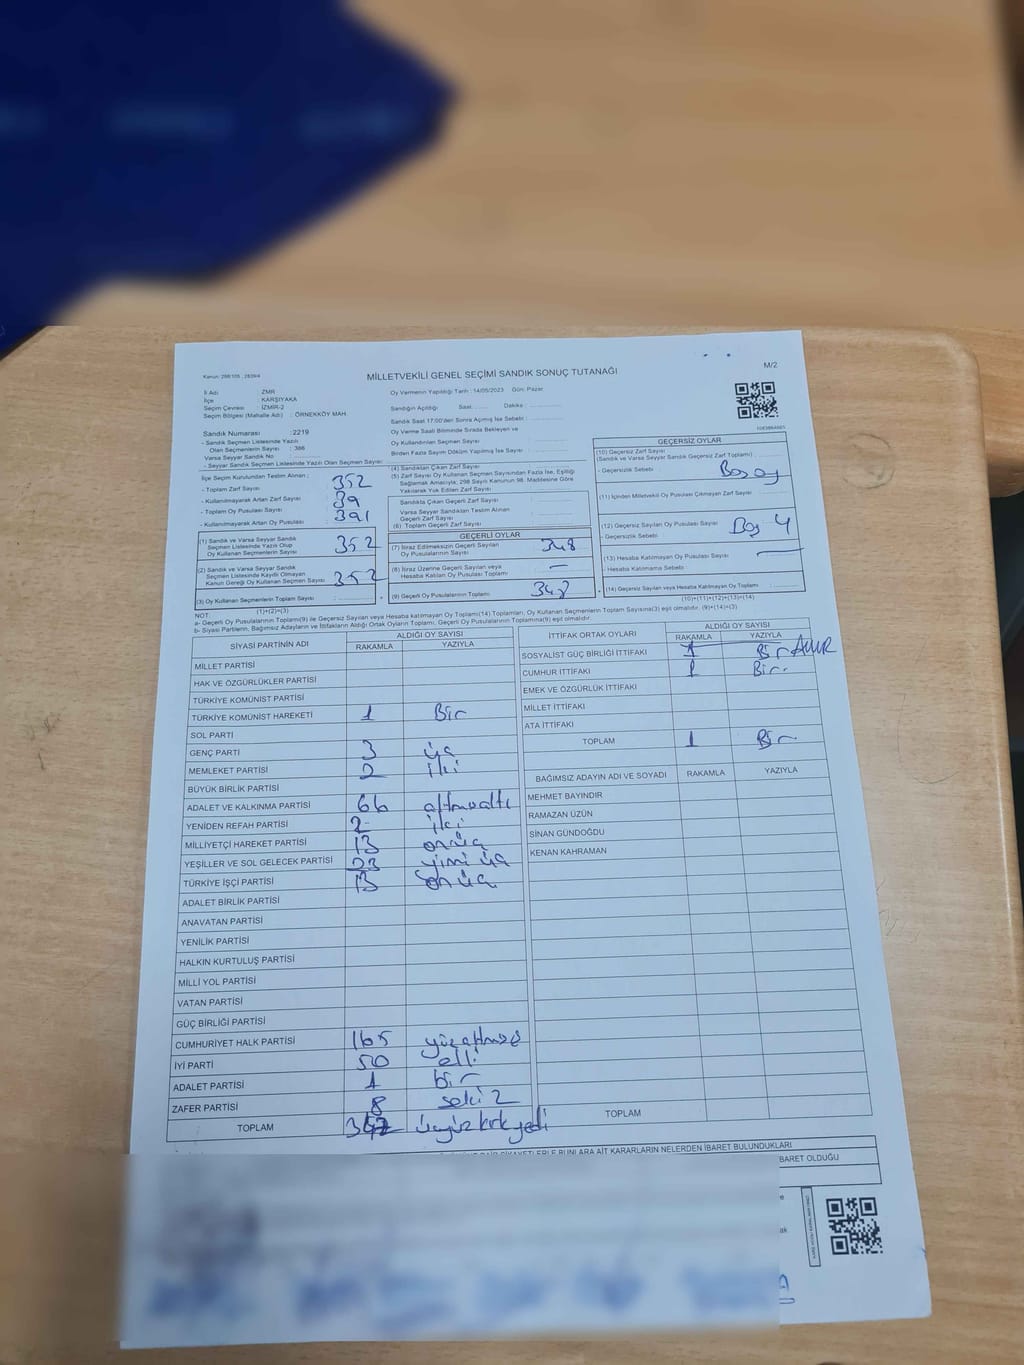 Kanun: 298/105 , 2839/4
MİLLETVEKİLİ GENEL SEÇİMİ SANDIK SONUÇ TUTANAĞI
M/2
İl Adı : İZMİR
İlçe : KARŞIYAKA
Seçim Çevresi : İZMİR-2
Seçim Bölgesi (Mahalle Adı) : ÖRNEKKÖY MAH.
Sandık Numarası : 2219
- Sandık Seçmen Listesinde Yazılı
Olan Seçmenlerin Sayısı : 386
Varsa Seyyar Sandık No
- Seyyar Sandık Seçmen Listesinde Yazılı Olan Seçmen Sayısı:
İlçe Seçim Kurulundan Teslim Alınan :
- Toplam Zarf Sayısı 352
- Kullanılmayarak Artan Zarf Sayısı 39
- Kullanılmayarak Artan Oy Pusulası 391
(1) Sandık ve Varsa Seyyar Sandık
Seçmen Listesinde Yazılı Olup
Oy Kullanan Seçmenlerin Sayısı 352
(2) Sandık ve Varsa Seyyar Sandık
Seçmen Listesinde Kayıtlı Olmayan
Kanun Gereği Oy Kullanan Seçmen Sayısı 352
(3) Oy Kullanan Seçmenlerin Toplam Sayısı :
(1)+(2)=(3)
Oy Vermenin Yapıldığı Tarih : 14/05/2023 Gün: Pazar
Sandığın Açıldığı Saat: Dakika :
Sandık Saat 17:00'den Sonra Açılmış İse Sebebi :
Oy Verme Saati Bitiminde Sırada Bekleyen ve
Oy Kullandırılan Seçmen Sayısı :
Birden Fazla Sayım Döküm Yapılmış İse Sayısı :
(4) Sandıktan Çıkan Zarf Sayısı
(5) Zarf Sayısı Oy Kullanan Seçmen Sayısından Fazla İse, Eşitliği
Sağlamak Amacıyla; 298 Sayılı Kanunun 98. Maddesine Göre
Yakılarak Yok Edilen Zarf Sayısı
Sandıkta Çıkan Geçerli Zarf Sayısı
Varsa Seyyar Sandıktan Teslim Alınan
Geçerli Zarf Sayısı
(6) Toplam Geçerli Zarf Sayısı
GEÇERLİ OYLAR
(7) İtiraz Edilmeksizin Geçerli Sayılan
Oy Pusulalarının Sayısı 348
(8) İtiraz Üzerine Geçerli Sayılan veya
Hesaba Katılan Oy Pusulası Toplamı : —
(9) Geçerli Oy Pusulalarının Toplamı 348
GEÇERSİZ OYLAR
(10) Geçersiz Zarf Sayısı
(Sandık ve Varsa Seyyar Sandık Geçersiz Zarf Toplamı)
- Geçersizlik Sebebi : Boş oy
(11) İçinden Milletvekili Oy Pusulası Çıkmayan Zarf Sayısı :
(12) Geçersiz Sayılan Oy Pusulası Sayısı : Boş 4
- Geçersizlik Sebebi:
(13) Hesaba Katılmayan Oy Pusulası Sayısı : —
- Hesaba Katılmama Sebebi :
(14) Geçersiz Sayılan veya Hesaba Katılmayan Oy Toplamı :
(10)+(11)+(12)+(13)=(14)
NOT:
a- Geçerli Oy Pusulalarının Toplamı(9) ile Geçersiz Sayılan veya Hesaba katılmayan Oy Toplamı(14) Toplamları, Oy Kullanan Seçmenlerin Toplam Sayısına(3) eşit olmalıdır. (9)+(14)=(3)
b- Siyasi Partilerin, Bağımsız Adayların ve İttifakların Aldığı Ortak Oyların Toplamı, Geçerli Oy Pusulalarının Toplamına(9) eşit olmalıdır.
SİYASİ PARTİNİN ADI ALDIĞI OY SAYISI
RAKAMLA YAZIYLA
MİLLET PARTİSİ
HAK VE ÖZGÜRLÜKLER PARTİSİ
TÜRKİYE KOMÜNİST PARTİSİ
TÜRKİYE KOMÜNİST HAREKETİ 1 Bir
SOL PARTİ
GENÇ PARTİ 3 üç
MEMLEKET PARTİSİ 2 iki
BÜYÜK BİRLİK PARTİSİ
ADALET VE KALKINMA PARTİSİ 66 altmışaltı
YENİDEN REFAH PARTİSİ 2 iki
MİLLİYETÇİ HAREKET PARTİSİ 13 onüç
YEŞİLLER VE SOL GELECEK PARTİSİ 23 yirmi üç
TÜRKİYE İŞÇİ PARTİSİ 13 onüç
ADALET BİRLİK PARTİSİ
ANAVATAN PARTİSİ
YENİLİK PARTİSİ
HALKIN KURTULUŞ PARTİSİ
MİLLİ YOL PARTİSİ
VATAN PARTİSİ
GÜÇ BİRLİĞİ PARTİSİ
CUMHURİYET HALK PARTİSİ 165
İYİ PARTİ 50 elli
ADALET PARTİSİ 1 bir
ZAFER PARTİSİ 8 sekiz
TOPLAM 347 üçyüzkırkyedi
İTTİFAK ORTAK OYLARI ALDIĞI OY SAYISI
RAKAMLA YAZIYLA
SOSYALİST GÜÇ BİRLİĞİ İTTİFAKI 1 Bir
CUMHUR İTTİFAKI 1 Bir.
EMEK VE ÖZGÜRLÜK İTTİFAKI
MİLLET İTTİFAKI
ATA İTTİFAKI
TOPLAM 1 Bir
BAĞIMSIZ ADAYIN ADI VE SOYADI RAKAMLA YAZIYLA
MEHMET BAYINDIR
RAMAZAN ÜZÜN
SİNAN GÜNDOĞDU
KENAN KAHRAMAN
TOPLAM
KARARLARIN NELERDEN İBARET BULUNDUKLARI
İBARET OLDUĞU